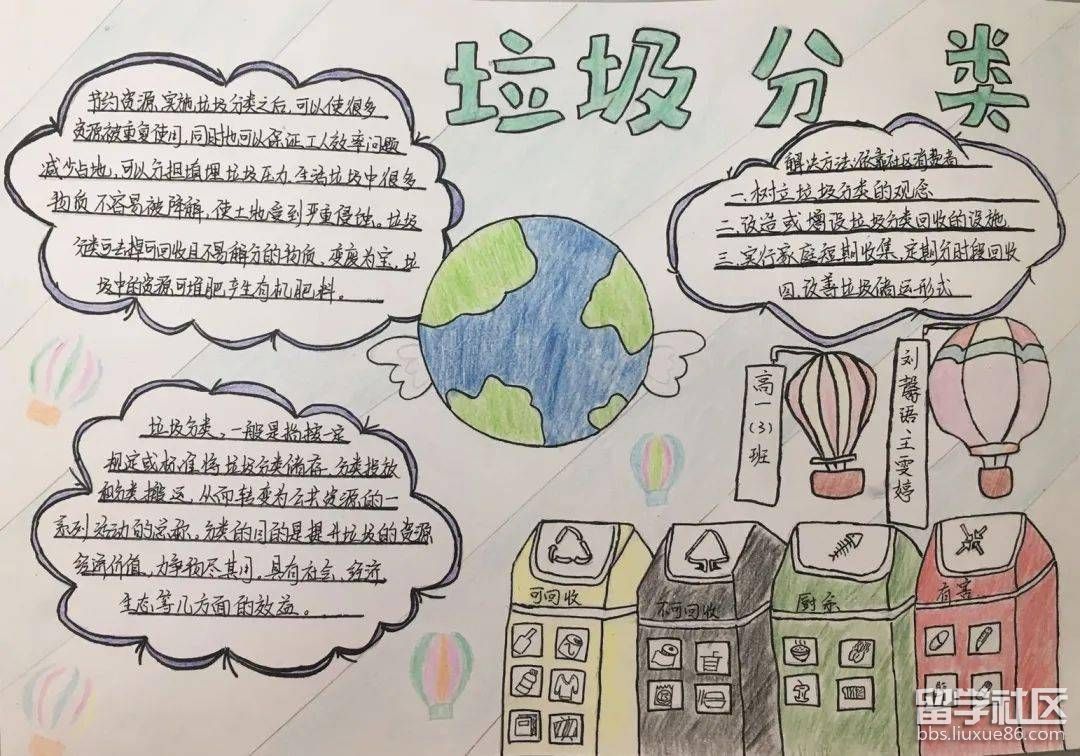 垃圾分类
节约资源，实施垃圾分类之后，可以使很多
资源被重复使用，同时也可以保证工人效率问题
减少占地，可以分担填埋垃圾压力，生活垃圾中很多
物质不容易被降解，使土地受到严重侵蚀。垃圾
分类可去掉可回收且不易解分的物质，变废为宝，垃
圾中的资源可堆肥，产生有机肥料。
解决方法：依靠社区消费者
一、树立垃圾分类的观念
二、改造或增设垃圾分类回收的设施
三、实行家庭短期收集，定期分时段回收
四、改善垃圾储运形式
垃圾分类，一般是指按一定
规定或标准将垃圾分类储存、分类投放
和分类搬运，从而转变为公共资源的一
系列活动的总称。分类的目的是提升垃圾的资源
经济价值，力争物尽其用，具有社会，经济
生态等几方面的效益。
高一(3)班
刘馨语王雯婷
可回收
不可回收
厨余
有害
留学社区
bbs.liuxue86.com